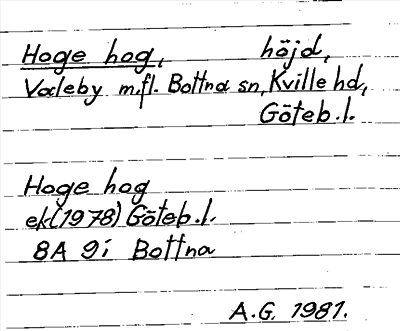 Hoge hog, höjd,
Valeby m.fl. Bottna sn, Kville hd,
Göteb. l.
Hoge hog
ek (1978) Göteb. l.
8A 9i Bottna
A.G. 1981.